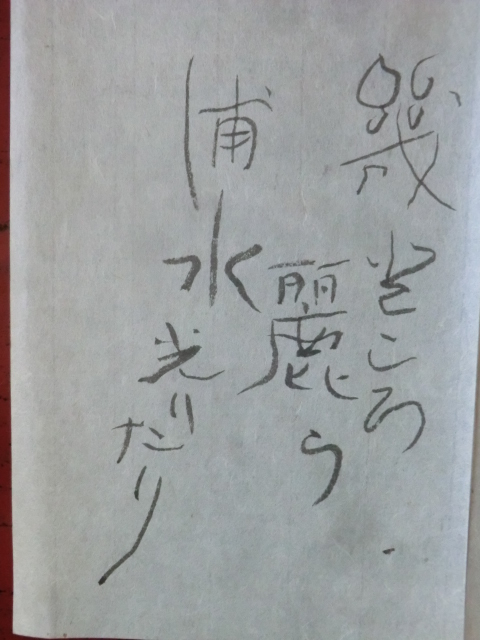 幾ところ
麗ら
浦水
光りたり